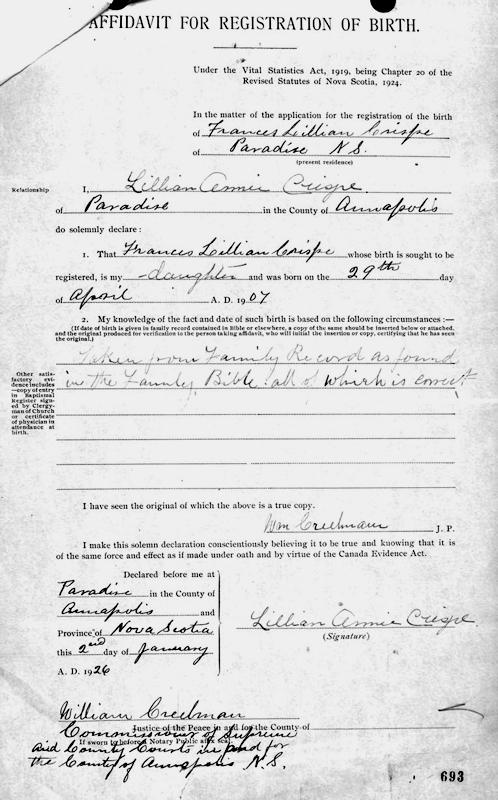 AFFIDAVIT FOR REGISTRATION OF BIRTH.
Under the Vital Statistics Act, 1919, being Chapter 20 of the
Revised Statutes of Nova Scotia, 1924.
In the matter of the application for the registration of the birth
of Frances Lillian Crispe
of Paradise N.S.
(present residence)
Relationship
I, Lillian Annie Crispe
of Paradise in the County of Annapolis
do solemnly declare:
1. That Frances Lillian Crispe whose birth is sought to be
registered, is my daughter and was born on the 29th day
of April A. D. 1907
2. My knowledge of the fact and date of such birth is based on the following circumstances :—
(If date of birth is given in family record contained in Bible or elsewhere, a copy of the same should be inserted below or attached,
and the original produced for verification to the person taking affidavit, who will initial the insertion or copy, certifying that he has seen
the original.)
Taken from Family Record as found
in the Family Bible. all of which is correct
Other satis-
factory evi-
dence includes
—copy of entry
in Baptismal
Register sign-
ed by Clergy-
man of Church
or certificate
of physician in
attendance at
birth.
I have seen the original of which the above is a true copy.
Wm Creelman J. P.
I make this solemn declaration conscientiously believing it to be true and knowing that it is
of the same force and effect as if made under oath and by virtue of the Canada Evidence Act.
Declared before me at
Paradise in the County of
Annapolis and
Province of Nova Scotia
this 2nd day of January
A. D. 1926
Lillian Annie Crispe
(Signature)
William Creelman
Justice of the Peace in and for the County of
Commissioner of Supreme
If sworn to before a Notary Public affix seal.
and County Courts in and for
the County of Annapolis N.S.
693